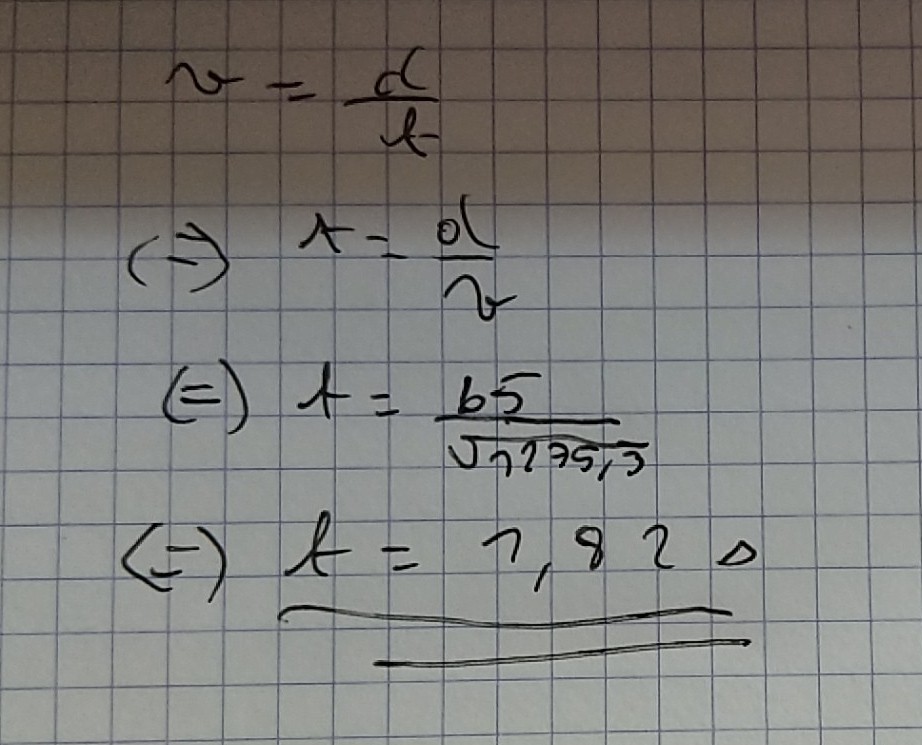 v = d/t
(=) t = d/v
(=) t = 65/√1275,3
(=) t = 1,82 s